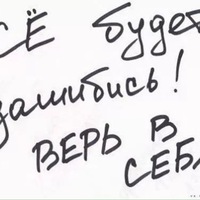 СЁ будет
зашибись!
ВЕРЬ В
СЕБЯ